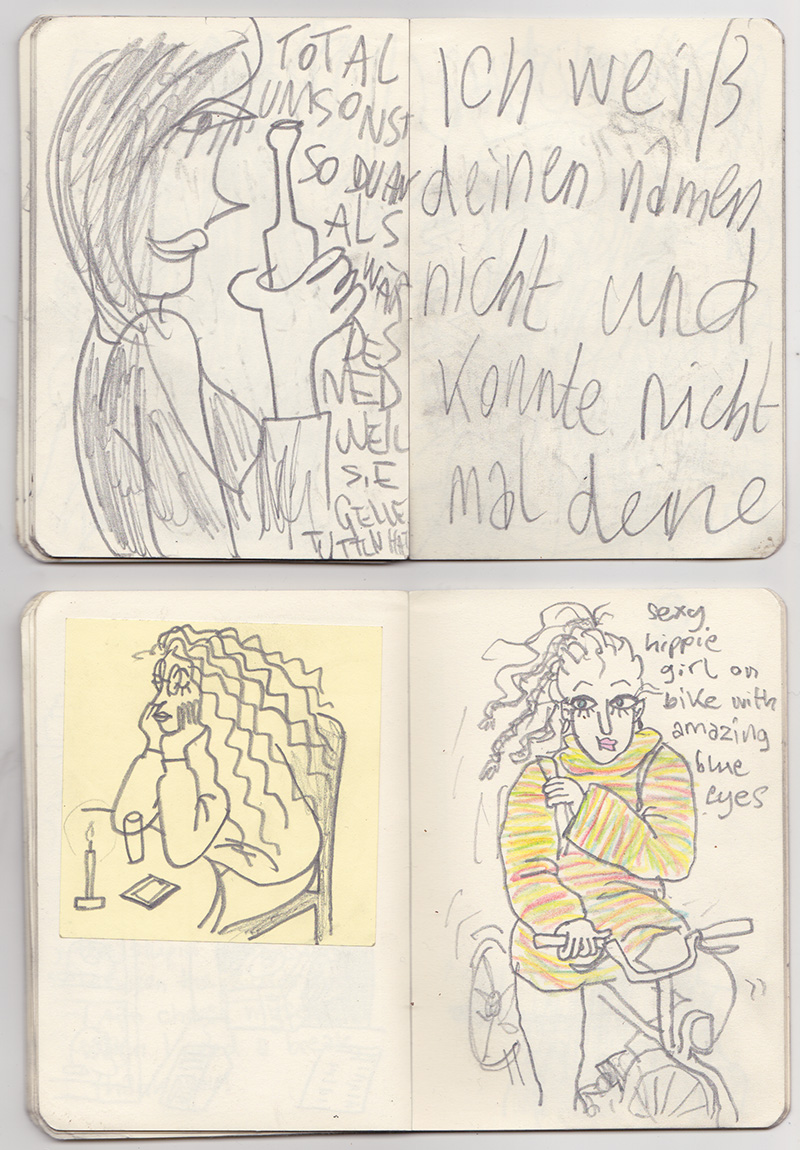 TOTAL
UMSONST
SO DUAN
ALS
WÄR
DES
NED
WEIL
SIE
GEILE
TUTTLN HAT
Ich weiß
deinen namen
nicht und
konnte nicht
mal deine
sexy
hippie
girl on
bike with
amazing
blue
eyes